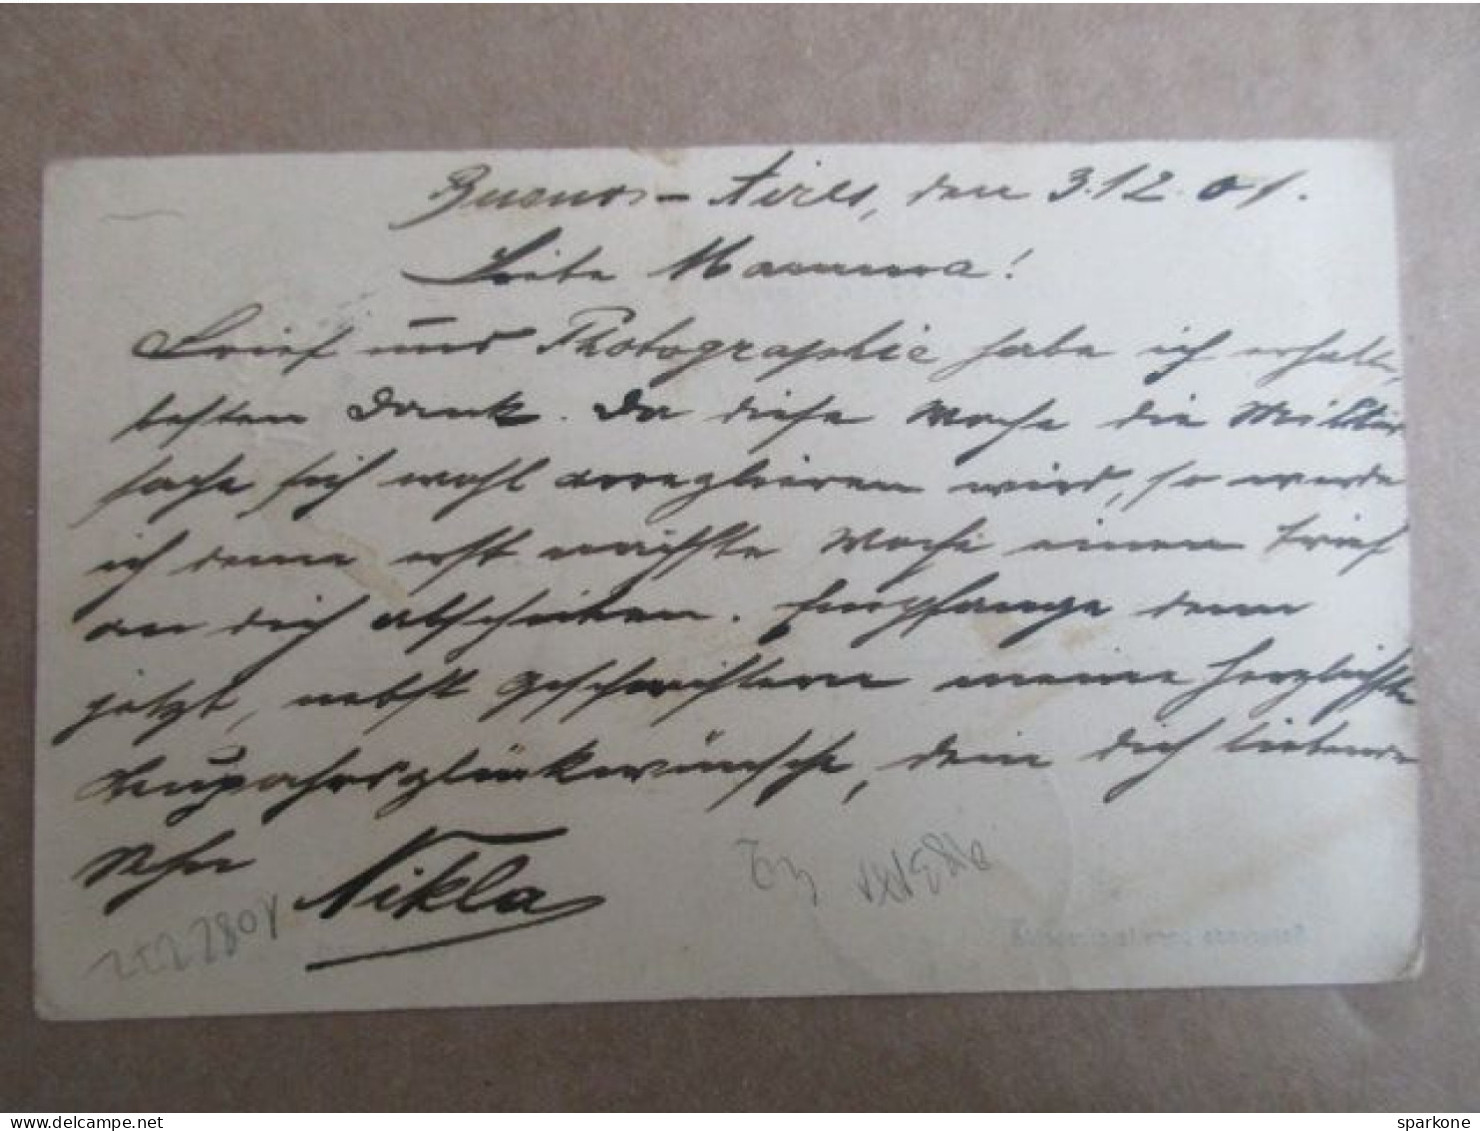 Buenos-Aires, den 3.12.01.
Liebe Mamma!
Brief und Photographie habe ich erhalten,
besten Dank. Da diese Woche die Militär
sache sich wohl arreglieren wird, so werde
ich denn erst nächste Woche einen Brief
an dich abschicken. Empfange denn
jetzt, nebst Geschwistern meine herzlichsten
Neujahrsglückwünsche, dein dich liebender
Sohn Nikla
delcampe.net
sparkone